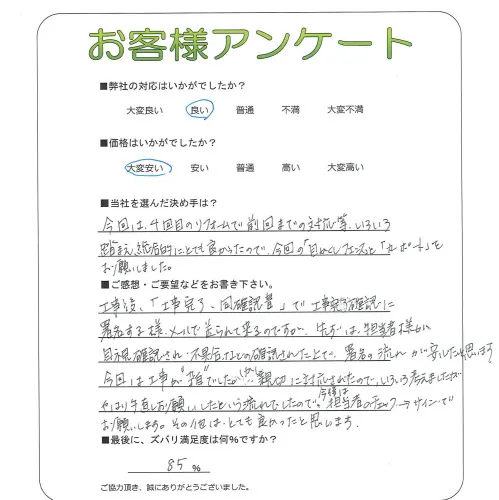 お客様アンケート
■弊社の対応はいかがでしたか？
大変良い 良い 普通 不満 大変不満
■価格はいかがでしたか？
大変安い 安い 普通 高い 大変高い
■当社を選んだ決め手は？
今回は、4回目のリフォームで前回までの対応等、いろいろ
踏まえ、総合的にとても良かったので、今回の「目かくしフェンス」と「カーポート」を
お願いしました。
■ご感想・ご要望などをお書き下さい。
工事後、「工事完了、同確認書」で工事完了確認に
署名する様、メールで送られて来るのですが、先ずは、担当者様が
目視確認され、不具合なしの確認された上で、署名の流れが宜しいと思います
今回は工事が"雑"でしたが、親切に対応されたので、いろいろ考えましたが
やはり手直しお願いしたという流れでしたので。今後は担当者のチェック→サインで
お願いします。その他は、とても良かったと思います。
■最後に、ズバリ満足度は何%ですか？
85 %
ご協力頂き、誠にありがとうございました。